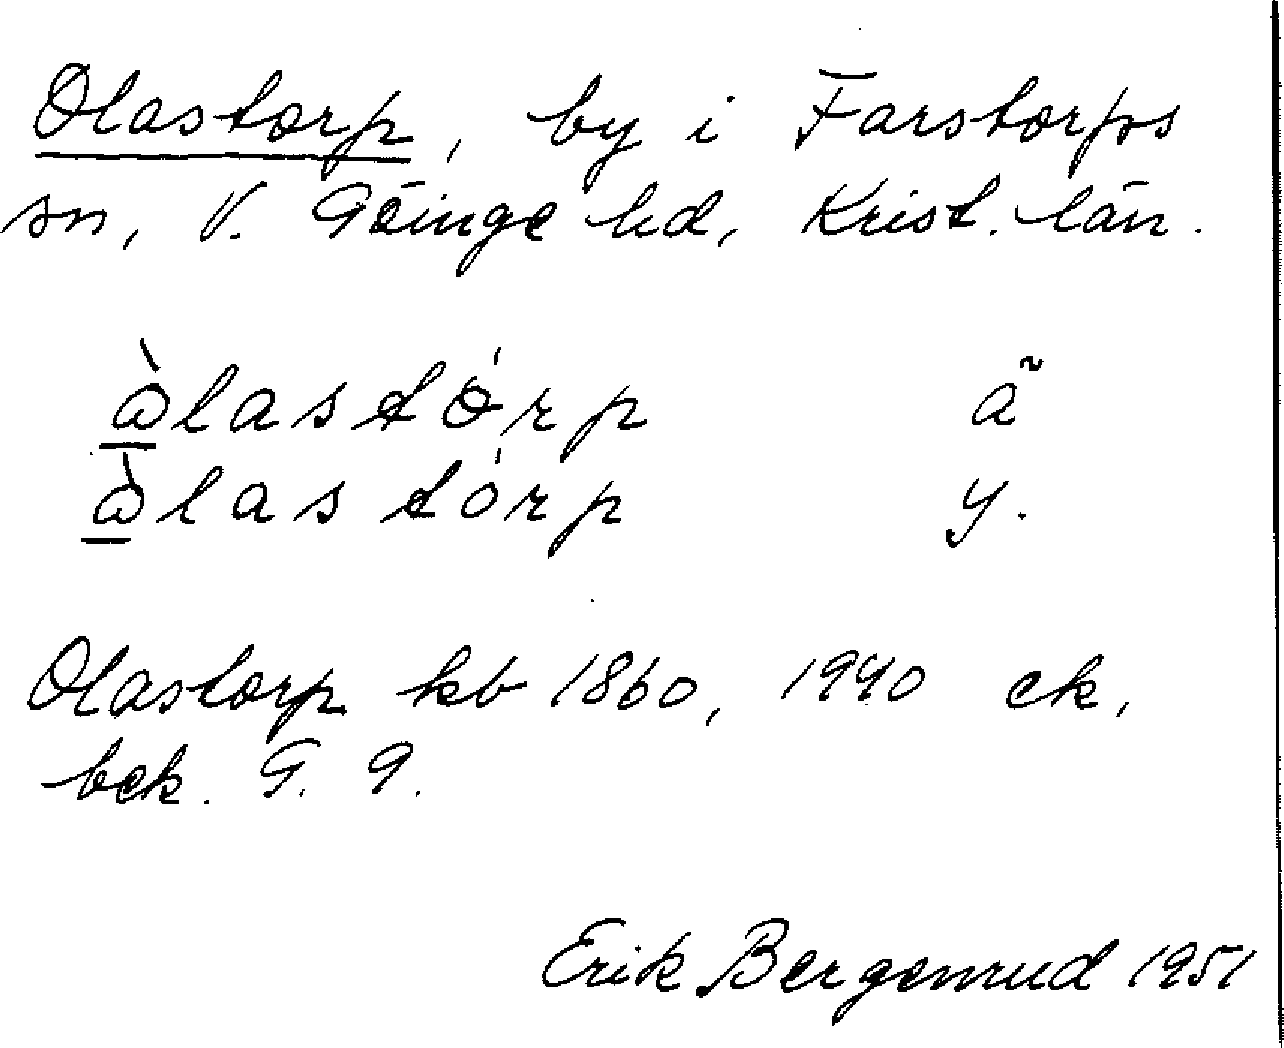 Olastorp, by i Farstorps
sn, V. Göinge hd, Krist. län.
ὼlastǿrp ã
ὼlastórp y.
Olastorp kb 1860, 1940 ek,
bek. G. 9.
Erik Bergenrud 1951